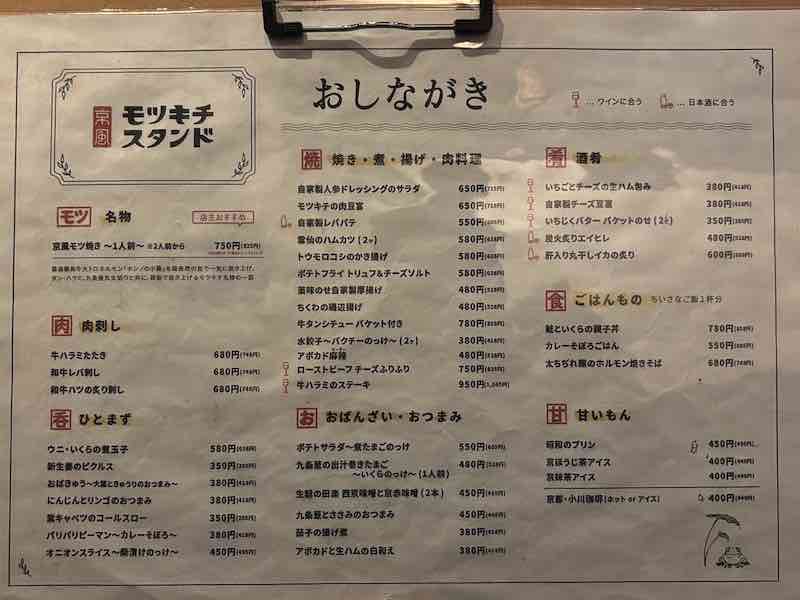 京風
モツキチ
スタンド
おしながき
… ワインに合う
… 日本酒に合う
モツ 名物
店主おすすめ
京風モツ焼き 〜1人前〜 ※2人前から 750円(825円)
肉 肉刺し
牛ハラミたたき 680円(748円)
和牛レバ刺し 680円(748円)
和牛ハツの炙り刺し 680円(748円)
呑 ひとまず
ウニ・いくらの煮玉子 580円(638円)
新生姜のピクルス 350円(385円)
おばきゅう〜大葉ときゅうりのおつまみ〜 380円(418円)
にんじんとリンゴのおつまみ 380円(418円)
紫キャベツのコールスロー 350円(385円)
パリパリピーマン〜カレーそぼろ〜 380円(418円)
オニオンスライス〜柴漬けのっけ〜 450円(495円)
焼 焼き・煮・揚げ・肉料理
自家製人参ドレッシングのサラダ 650円(715円)
モツキチの肉豆富 650円(715円)
自家製レバパテ 550円(605円)
雲仙のハムカツ (2ヶ) 580円(638円)
トウモロコシのかき揚げ 580円(638円)
ポテトフライ トリュフ&チーズソルト 580円(638円)
薬味のせ自家製厚揚げ 480円(528円)
ちくわの磯辺揚げ 480円(528円)
牛タンシチュー バケット付き 780円(858円)
水餃子〜パクチーのっけ〜 (2ヶ) 380円(418円)
アボカド麻辣 480円(528円)
ローストビーフ チーズふりふり 750円(825円)
牛ハラミのステーキ 950円(1,045円)
お おばんざい・おつまみ
ポテトサラダ〜煮たまごのっけ 550円(605円)
九条葱の出汁巻きたまご 480円(528円)
〜いくらのっけ〜 (1人前)
生麩の田楽 西京味噌と京赤味噌 (2本) 450円(495円)
九条葱とささみのおつまみ 450円(495円)
茄子の揚げ煮 380円(418円)
アボカドと生ハムの白和え 380円(418円)
肴 酒肴
いちごとチーズの生ハム包み 380円(418円)
自家製チーズ豆富 380円(418円)
いちじくバター バケットのせ (2ヶ) 350円(385円)
炭火炙りエイヒレ 480円(528円)
肝入り丸干しイカの炙り 600円(660円)
食 ごはんもの ちいさなご飯1杯分
鮭といくらの親子丼 780円(858円)
カレーそぼろごはん 550円(605円)
太ちぢれ麺のホルモン焼きそば 680円(748円)
甘 甘いもん
昭和のプリン 450円(495円)
京ほうじ茶アイス 400円(440円)
京抹茶アイス 400円(440円)
京都・小川珈琲(ホット or アイス) 400円(440円)